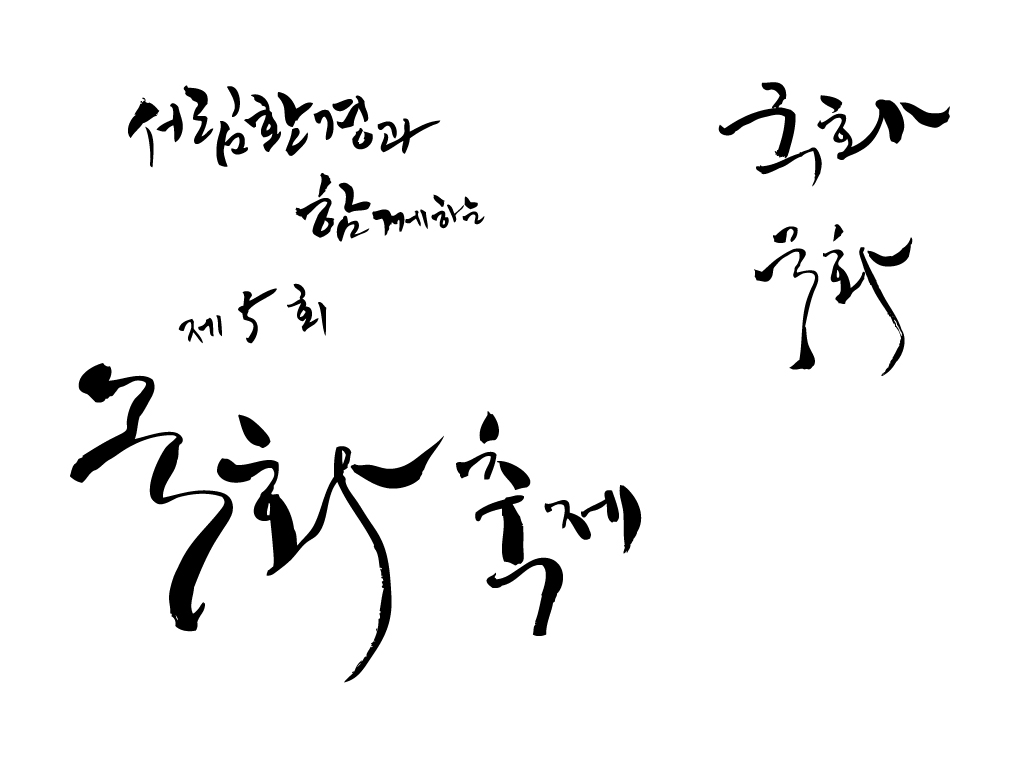 서림환경과
함께하는
제5회
국화 축제
국화
국화